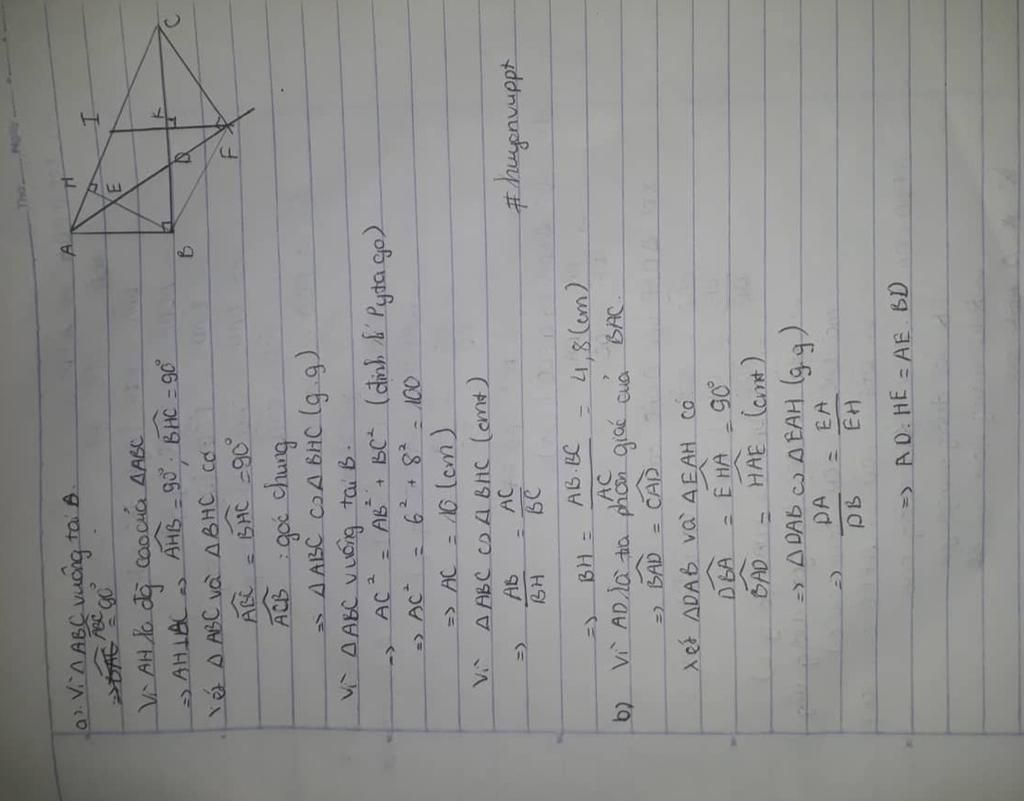 a) Vì △ABC vuông tại B.
=> ABC = 90°
Vì AH là đg cao của △ABC
=> AH⊥BC => AHB = 90°, BHC = 90°
Xét △ABC và △BHC có:
ABC = BHC = 90°
ACB : góc chung
=> △ABC ᔕ △BHC (g.g)
Vì △ABC vuông tại B.
=> AC² = AB² + BC² (định lí Pytago)
=> AC² = 6² + 8² = 100
=> AC = 10 (cm)
Vì △ABC ᔕ △BHC (cmt)
=> AB/BH = AC/BC
#huyenvuppt
=> BH = AB.BC/AC = 4,8 (cm)
b) Vì AD là tia phân giác của BAC.
=> BAD = CAD
Xét △DAB và △EAH có
DBA = EHA = 90°
BAD = HAE (cmt)
=> △DAB ᔕ △EAH (g.g)
=> DA/DB = EA/EH
=> AD.HE = AE.BD
A
H
I
C
E
D
K
B
F